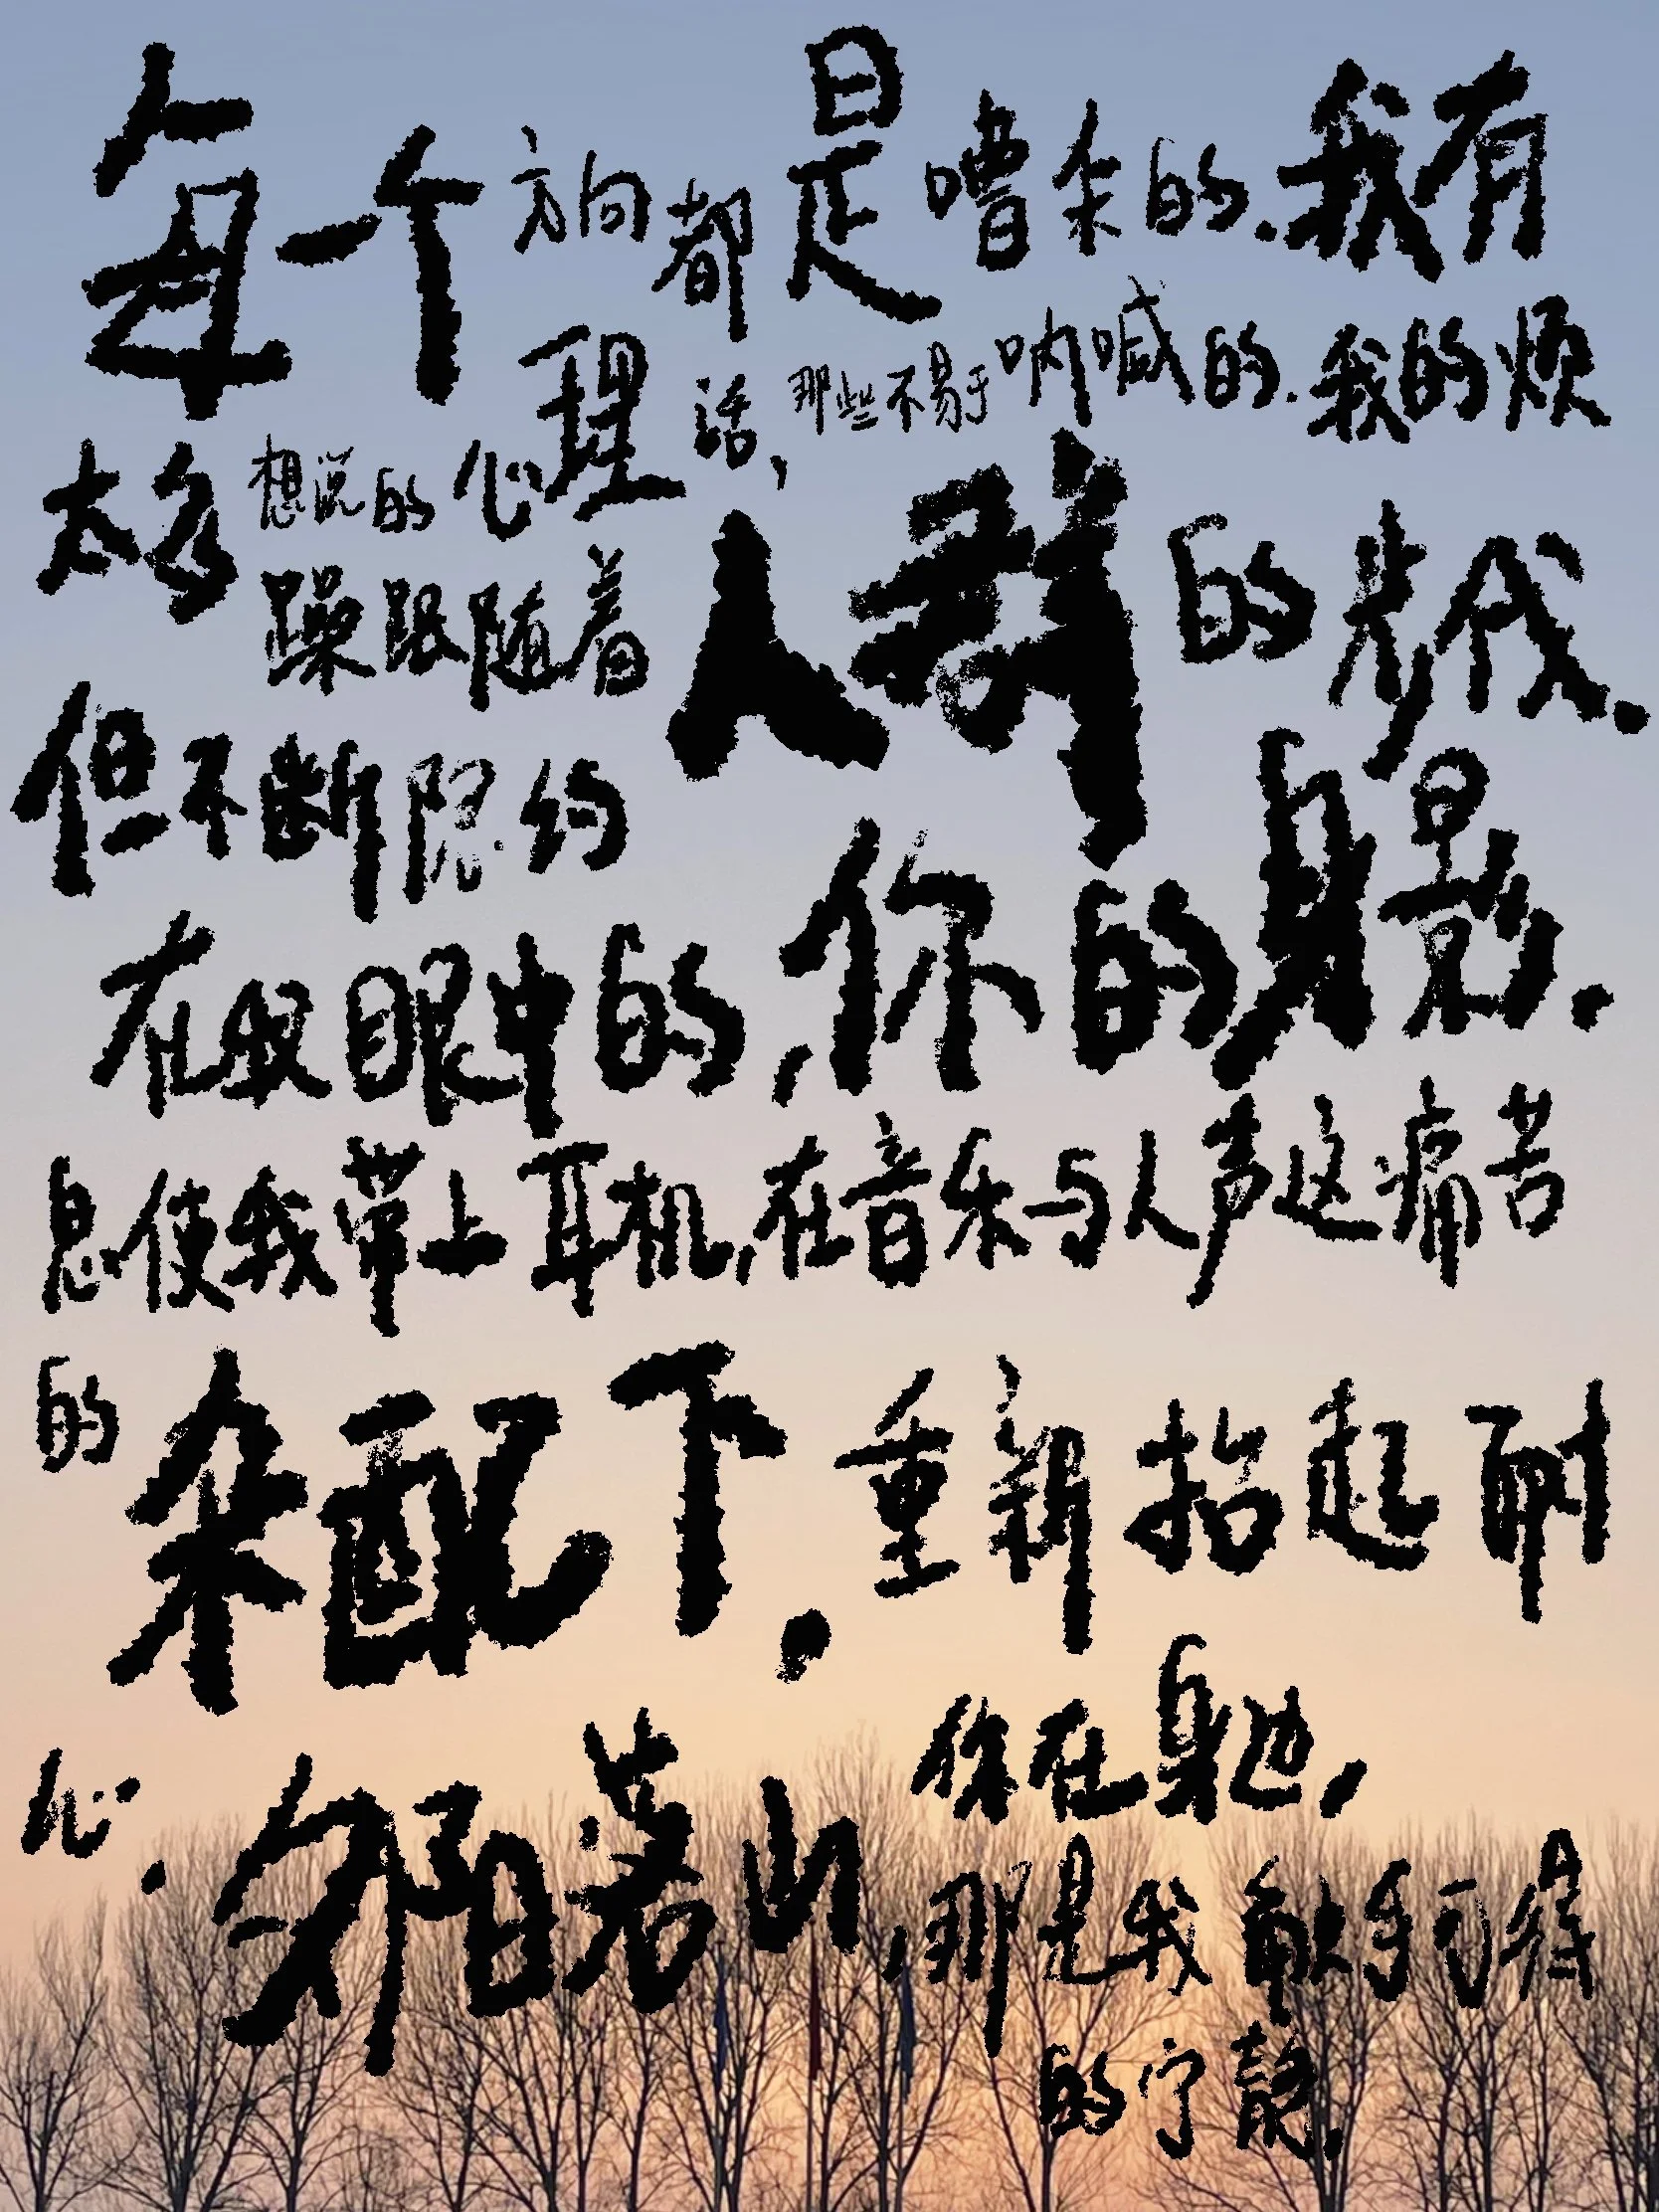 每一个方向都是嘈杂的.我有
太多想说的心理话,那些不易于呐喊的.我的烦
躁跟随着人群的步伐.
但不断隐约
在双眼中的,你的身影.
息使我带上耳机,在音乐与人声这痛苦
的杂配下,重新抬起耐
心.夕阳落山,你在身边,
那是我触手可得
的宁静.